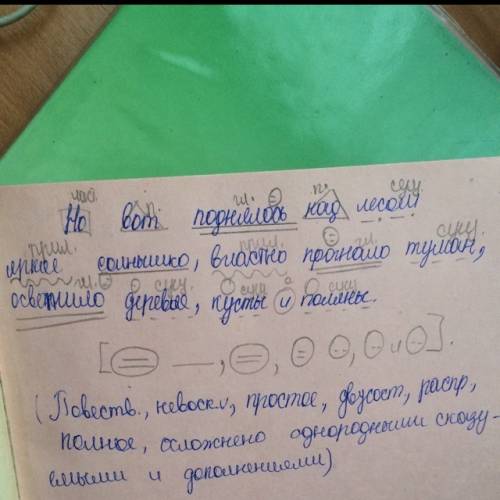 част. п. гл. п. сущ.
Но вот поднялось над лесом
прил. прил. гл. сущ.
яркое солнышко, властно прогнало туман,
гл. сущ. сущ. сущ.
осветнило деревья, кусты и поляны.
[ , , и ].
(Повеств., невоскл, простое, двусост, распр,
полное, осложнено однородными сказу-
емыми и дополнениями)